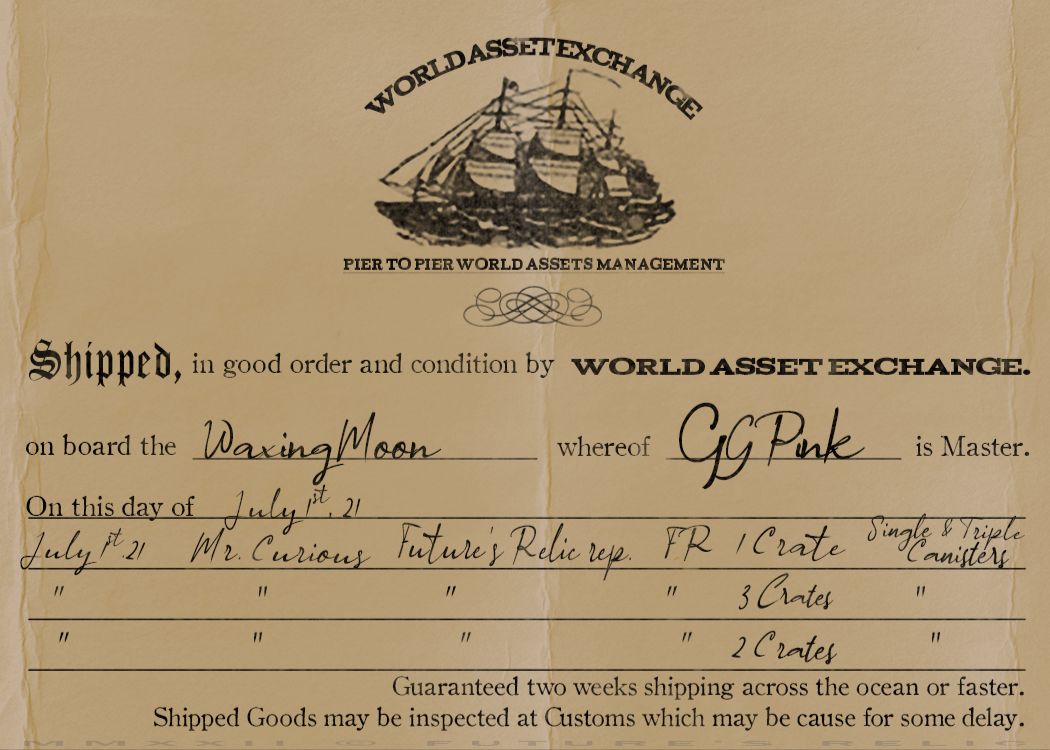 WORLD ASSET EXCHANGE
PIER TO PIER WORLD ASSETS MANAGEMENT
Shipped, in good order and condition by WORLD ASSET EXCHANGE.
on board the Waxing Moon whereof GG Pink is Master.
On this day of July 1st. 21
July 1st. 21 Mr. Curious Future's Relic rep. FR 1 Crate Single & Triple Canisters
" " " " 3 Crates "
" " " " 2 Crates "
Guaranteed two weeks shipping across the ocean or faster.
Shipped Goods may be inspected at Customs which may be cause for some delay.
MMXXII © FUTURE'S RELIC